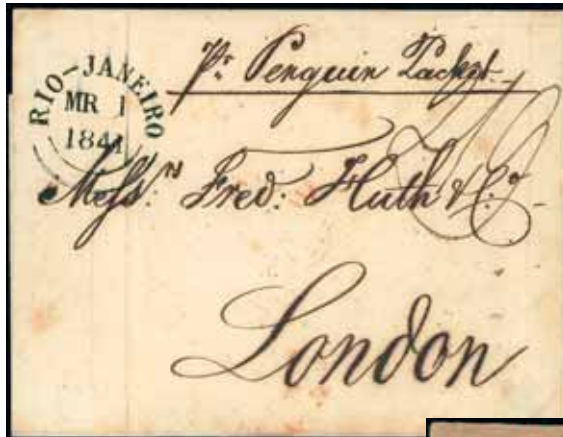 RIO-JANEIRO
MR 1
1841
Pr. Penguin Packet.
Messrs. Fred: Huth & Co.
London